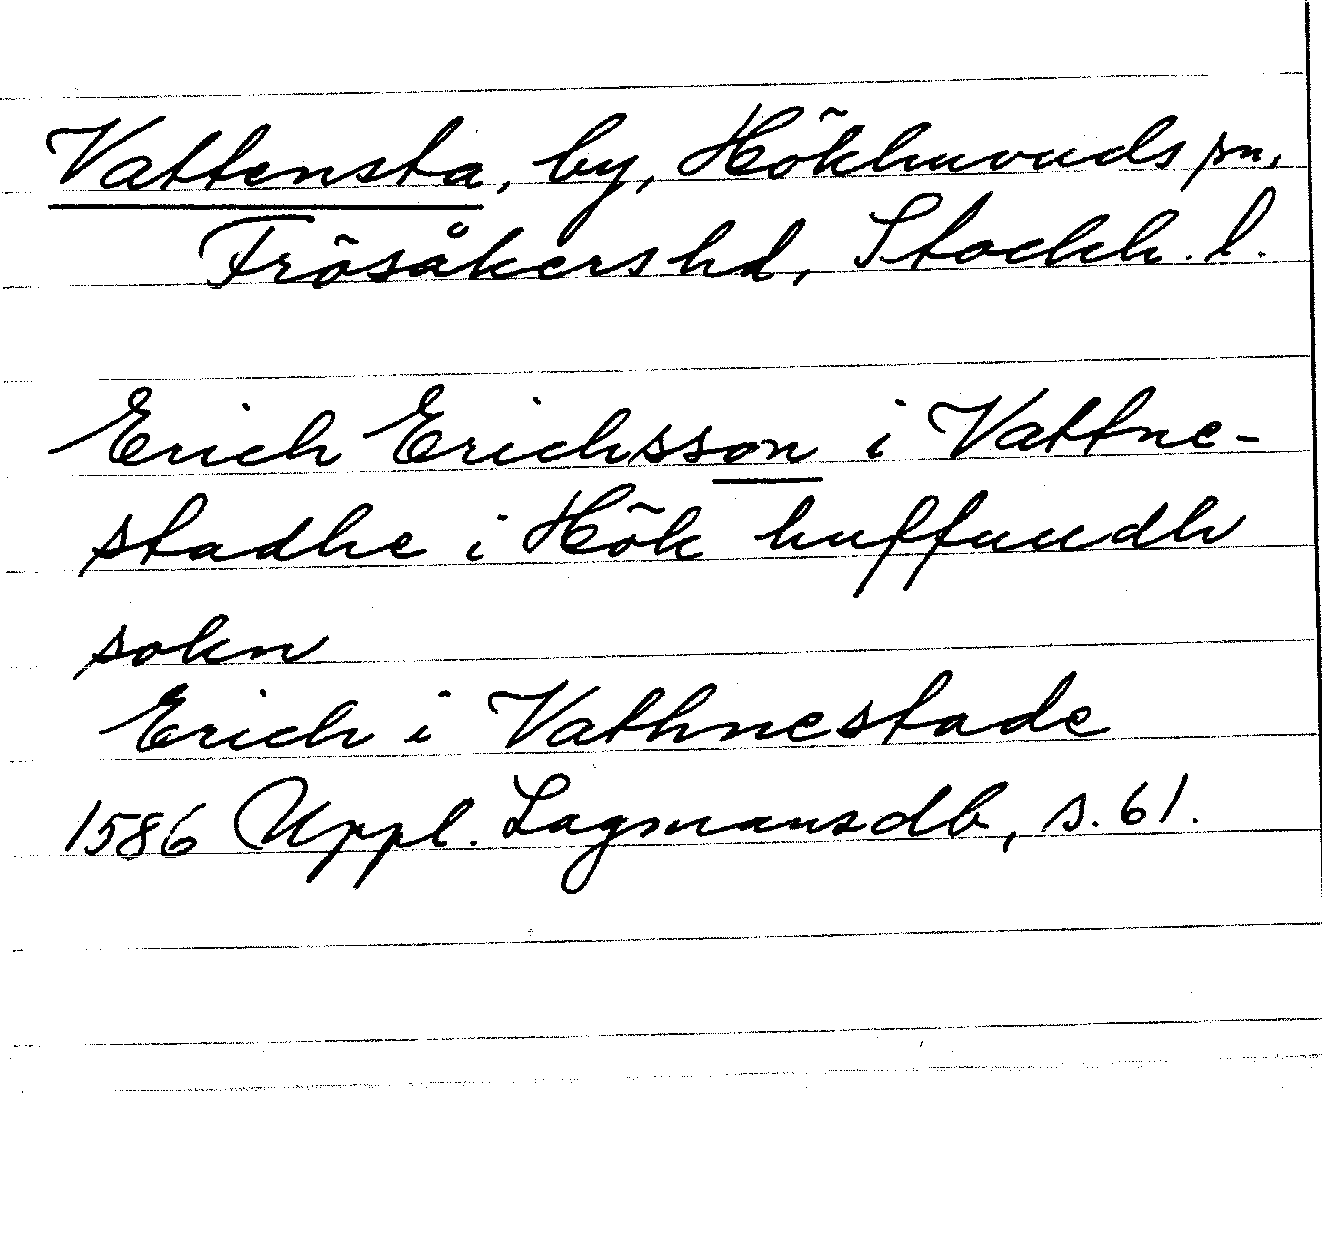 Vattensta, by, Hökhuvuds sn,
Frösåkers hd, Stockh. l.
Erich Erichsson i Vattne-
stadhe i Hök huffuudh
sokn
Erich i Vathnestade
1586 Uppl. Lagmansdb, s. 61.